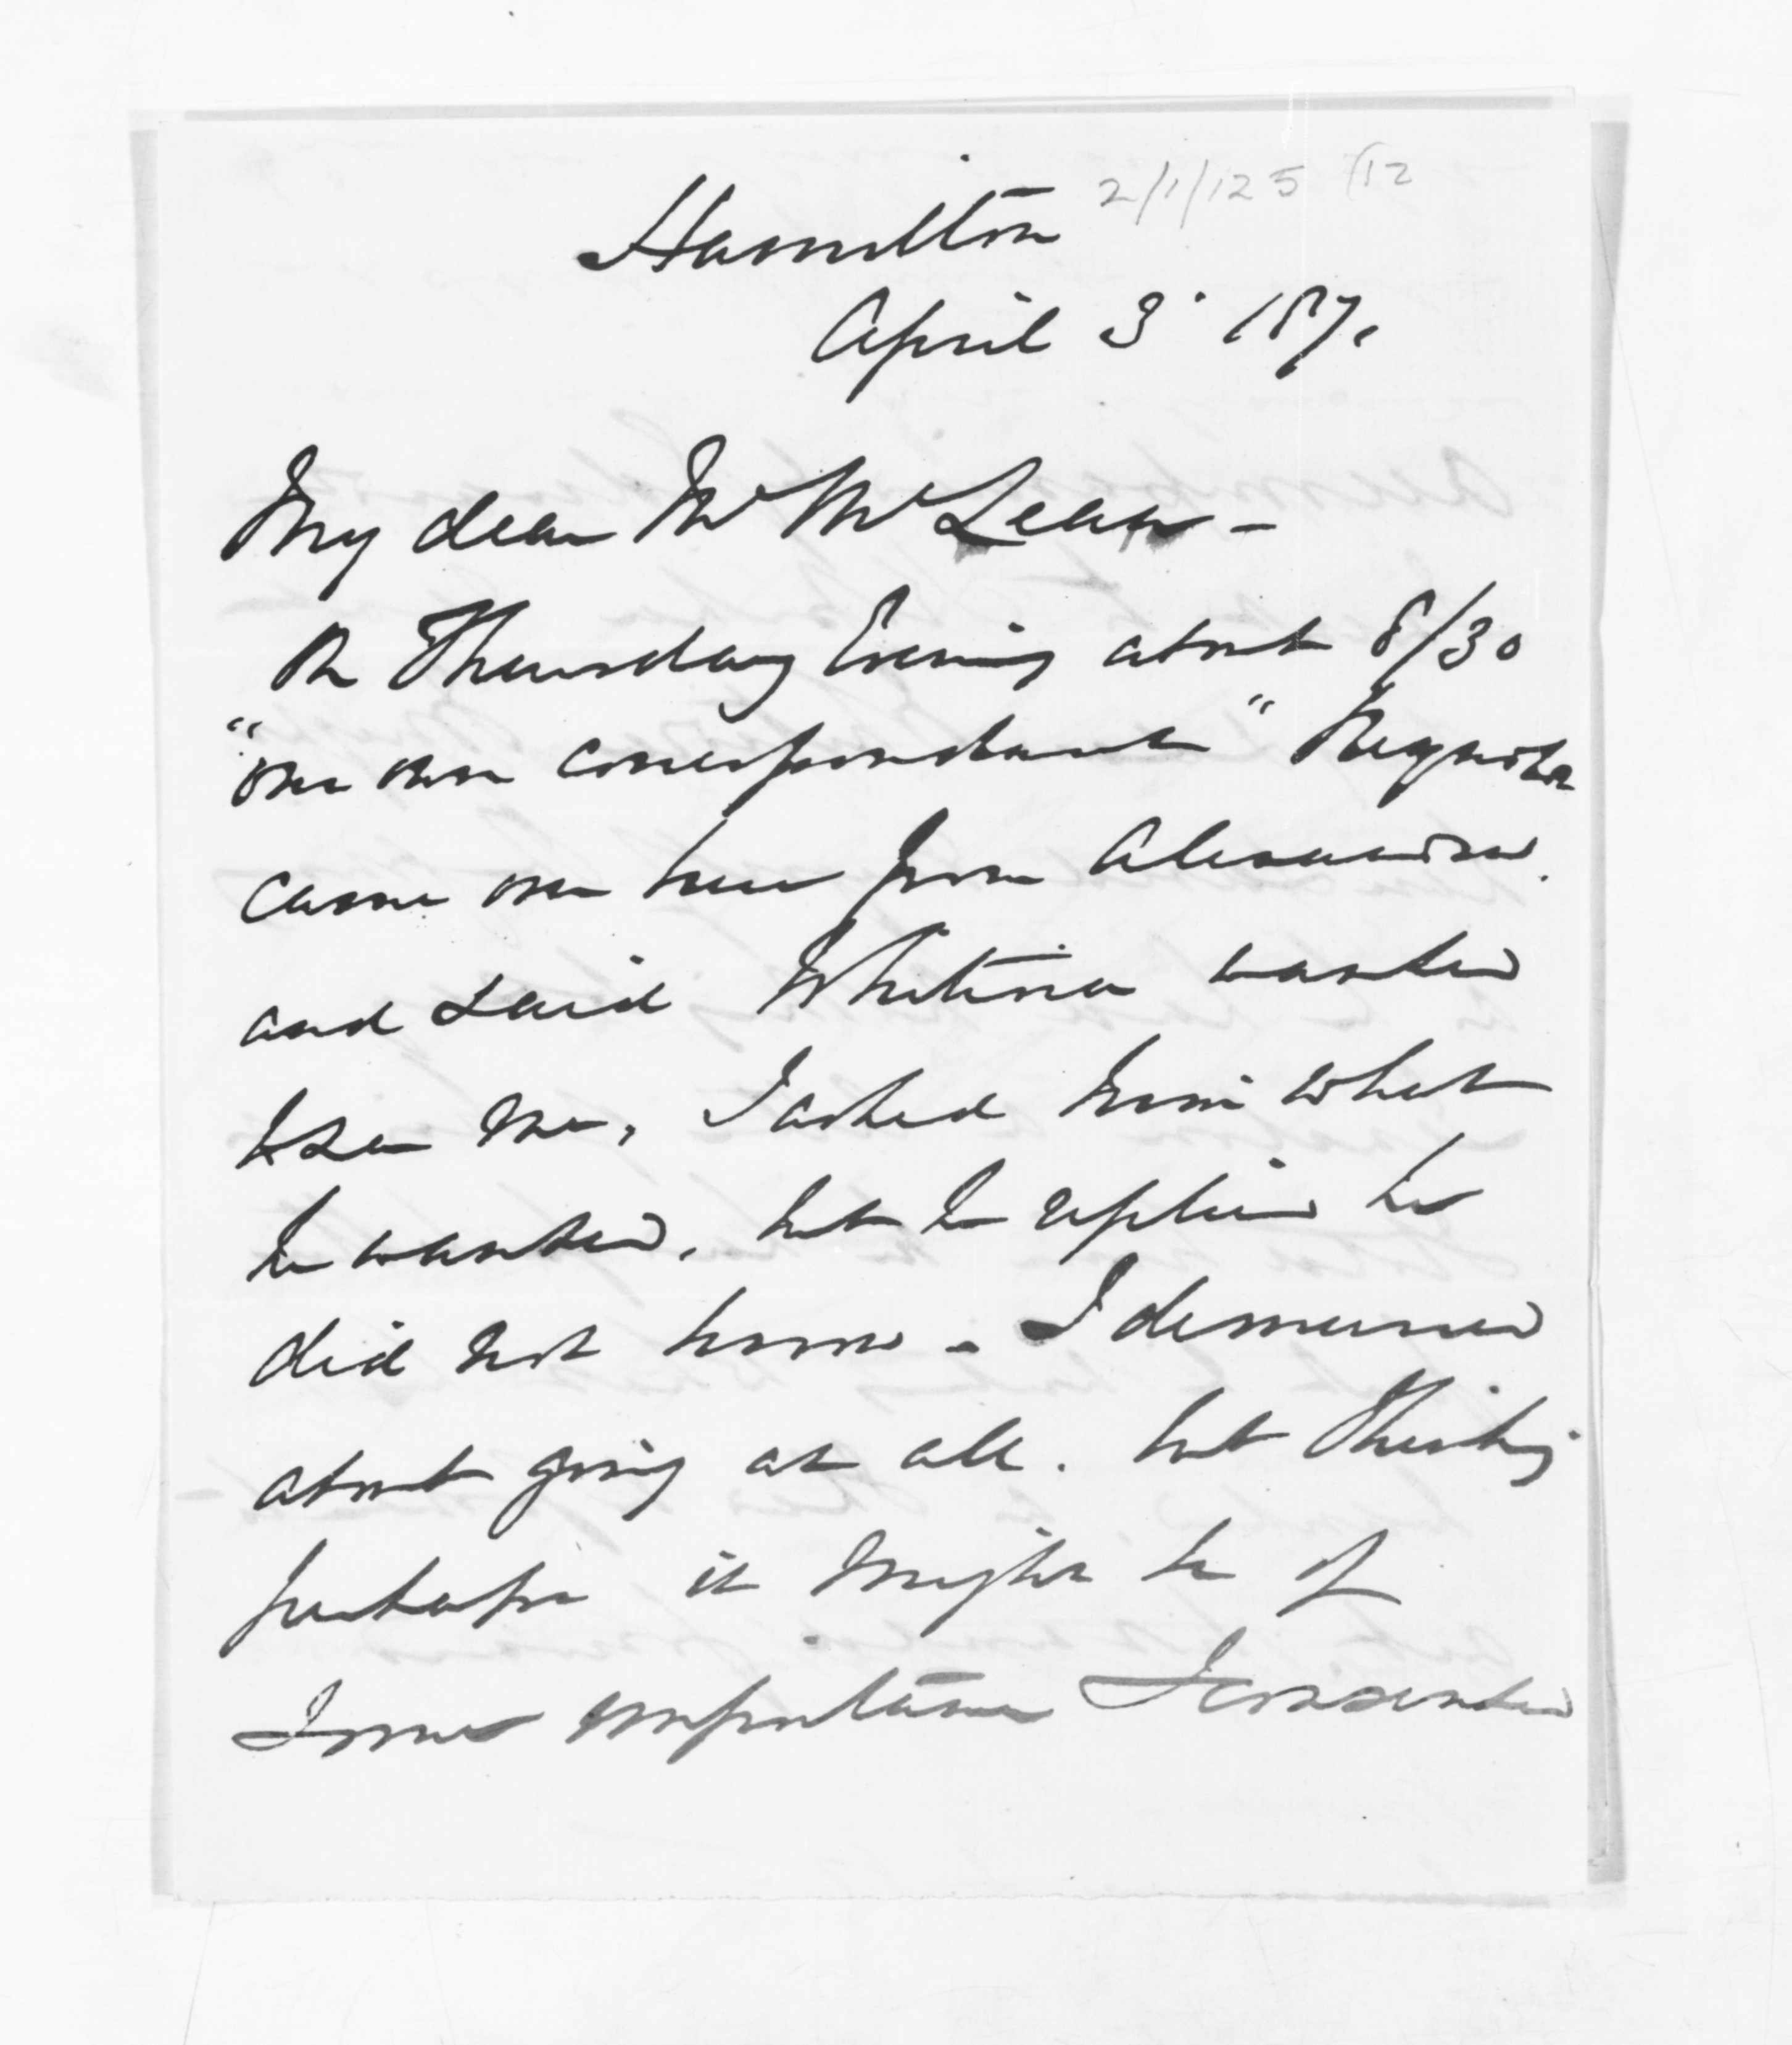 Hamilton 2/1/125 /12
April 3 187.
My dear Mr McLean -
On Thursday Evening about 8/30
"our own correspondent"
came over here from Alexandra.
and said Whitiora wanted
to see me, I asked him what
he wanted, but he replied he
did not know - I demurred
about going at all. but thinking
perhaps it might be of
some importance I consented